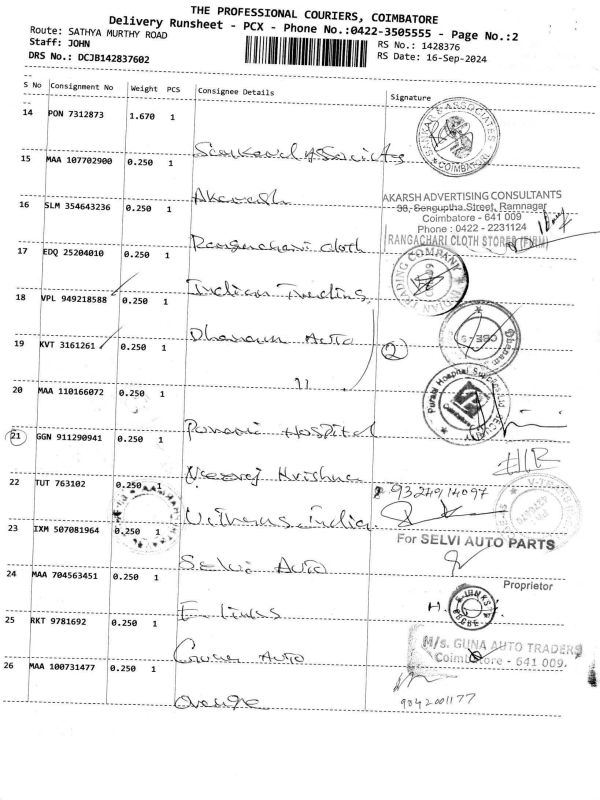 THE PROFESSIONAL COURIERS, COIMBATORE
Delivery Runsheet - PCX - Phone No.:0422-3505555 - Page No.:2
Route: SATHYA MURTHY ROAD
Staff: JOHN
RS No.: 1428376
DRS No.: DCJB142837602
RS Date: 16-Sep-2024
S No Consignment No Weight PCS Consignee Details Signature
14 PON 7312873 1.670 1
SANKAR & ASSOCIATES
COIMBATORE
15 MAA 107702900 0.250 1
Akarsh
AKARSH ADVERTISING CONSULTANTS
Senguptha Street, Ramnagar
Coimbatore - 641 009
Phone : 0422 - 2231124
16 SLM 354643236 0.250 1
Rangachari Cloth
RANGACHARI CLOTH STORES (FIRM)
17 EDQ 25204010 0.250 1
Indian Trading
TRADING COMPANY
18 VPL 949218588 0.250 1
Auto
2
19 KVT 3161261 0.250 1
11
20 MAA 110166072 0.250 1
Hospital
21 GGN 911290941 0.250 1
Neeraj Krishna
9324914097
22 TUT 763102 0.250 1
India
23 IXM 507081964 0.250 1
Selvi Auto
For SELVI AUTO PARTS
Proprietor
24 MAA 704563451 0.250 1
E links
25 RKT 9781692 0.250 1
Guna Auto
M/s. GUNA AUTO TRADERS
Coimbatore - 641 009.
26 MAA 100731477 0.250 1
9042001177